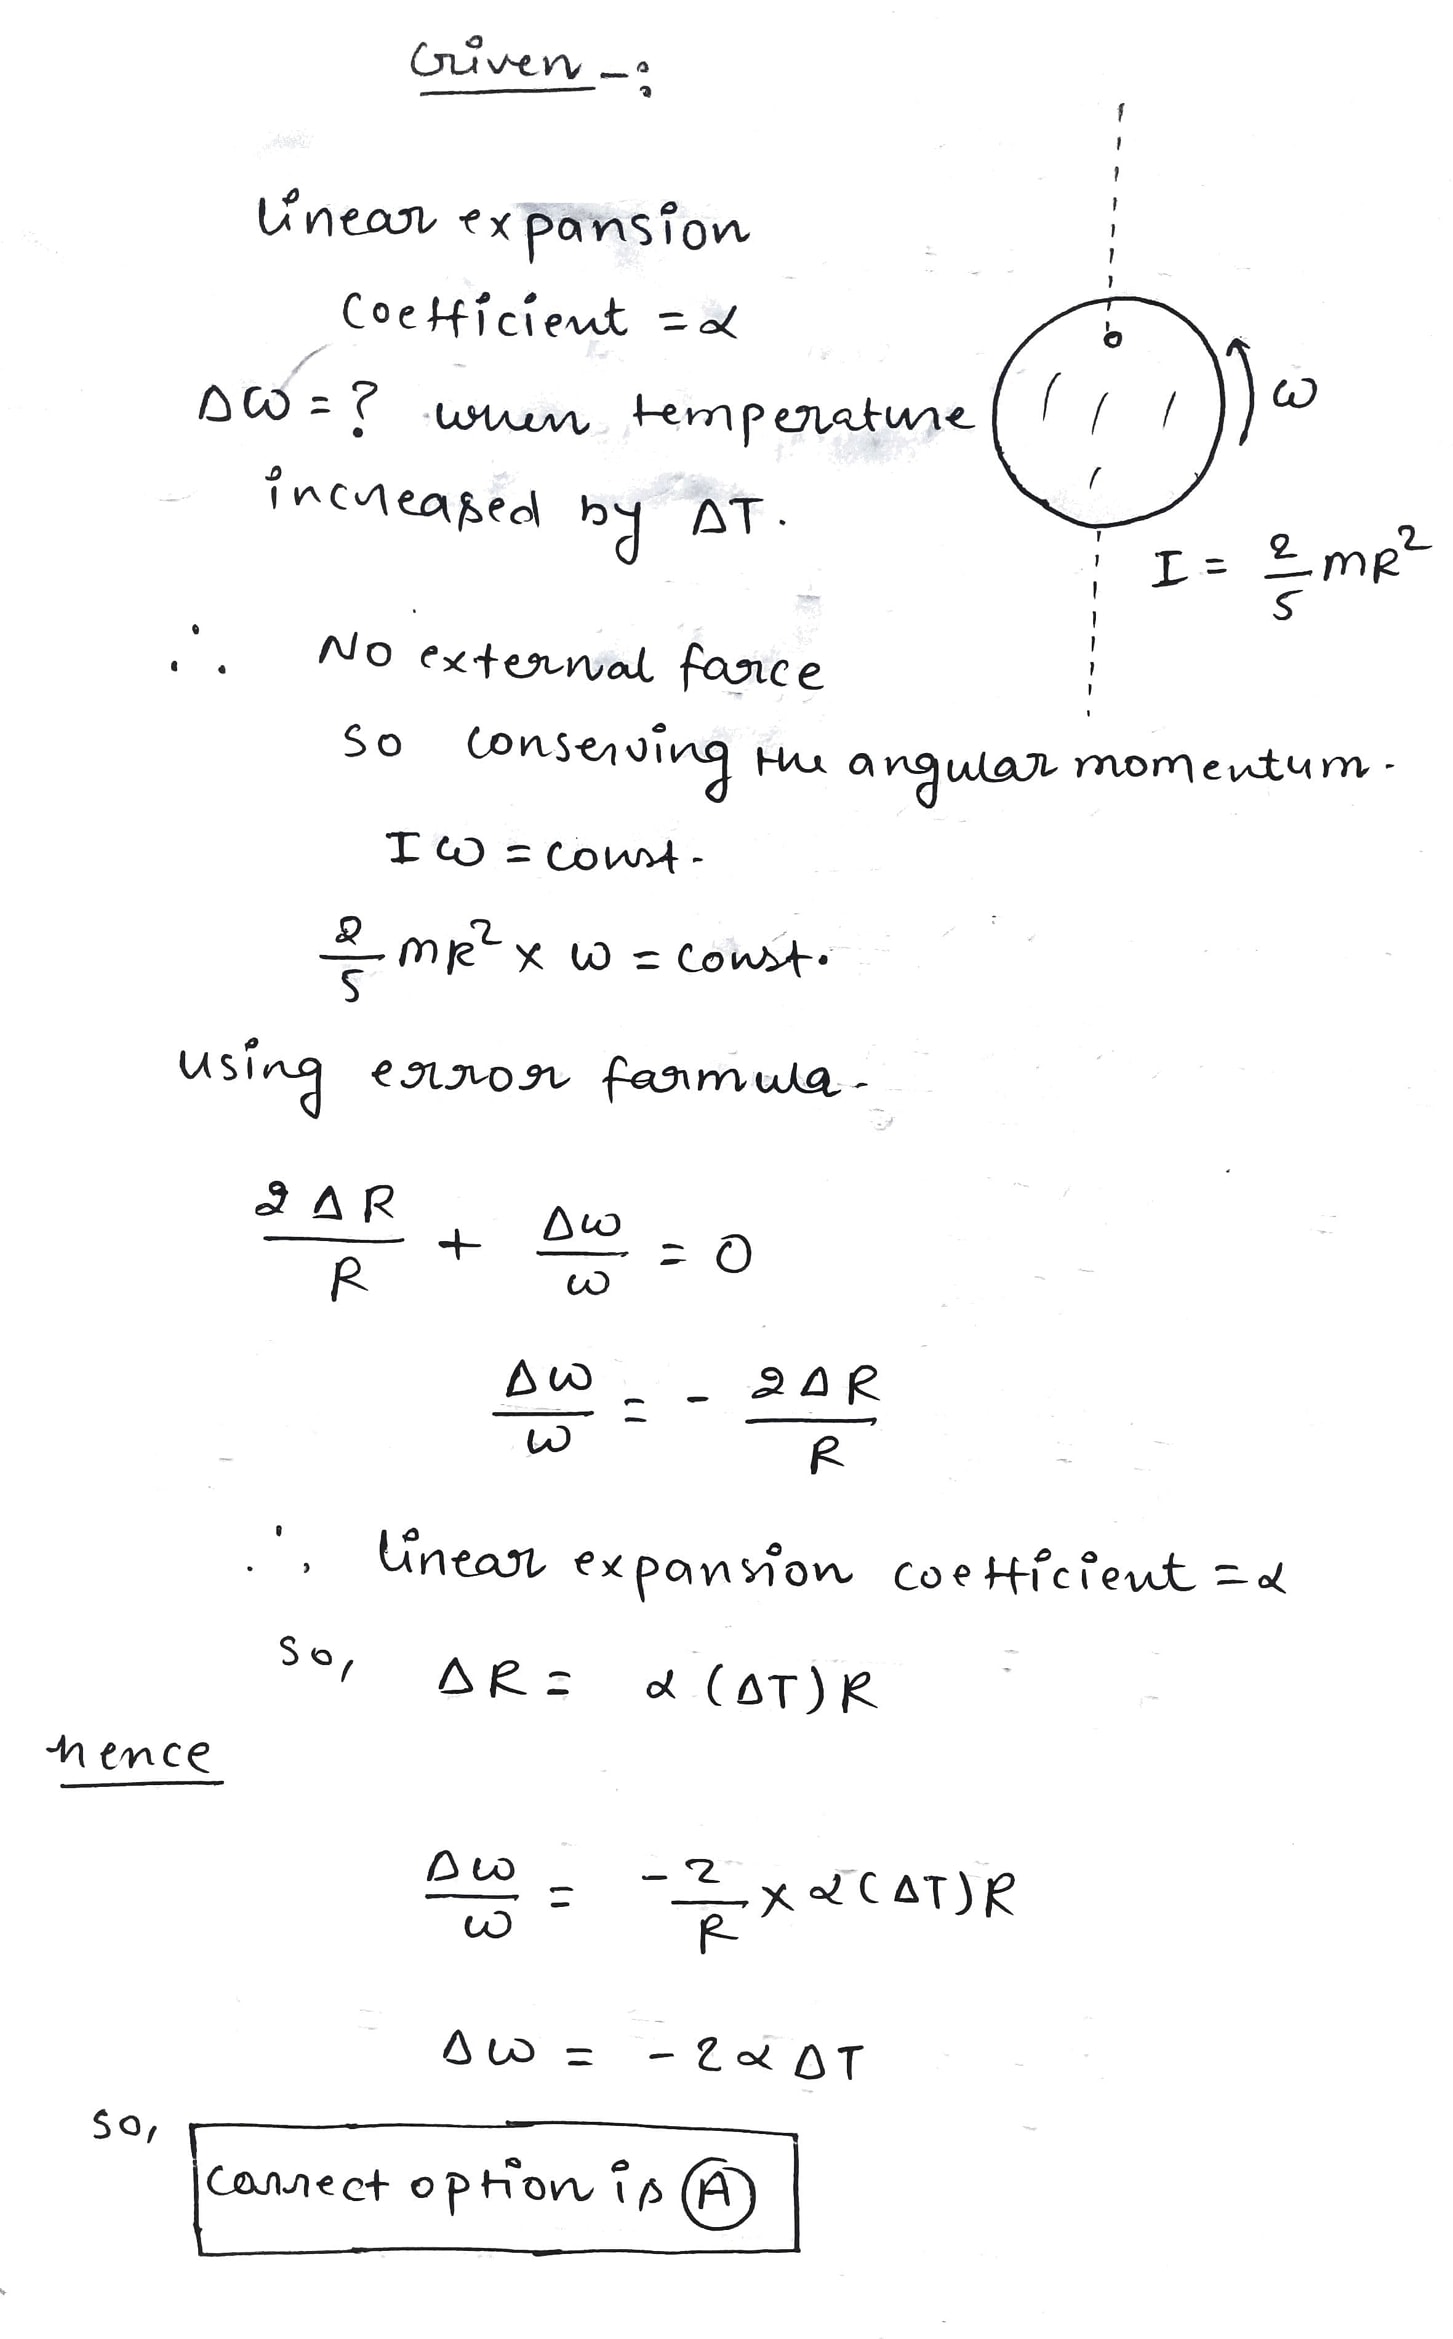 Given -:
linear expansion
Coefficient = α
Δω = ? when temperature
increased by ΔT.
ω
I = 2/5 mR²
∴ No external force
so conserving the angular momentum.
Iω = const.
2/5 mR² × ω = const.
using error formula-
2ΔR/R + Δω/ω = 0
Δω/ω = - 2ΔR/R
∴ linear expansion coefficient = α
so, ΔR = α(ΔT)R
hence
Δω/ω = -2/R × α(ΔT)R
Δω = -2αΔT
so,
correct option is (A)